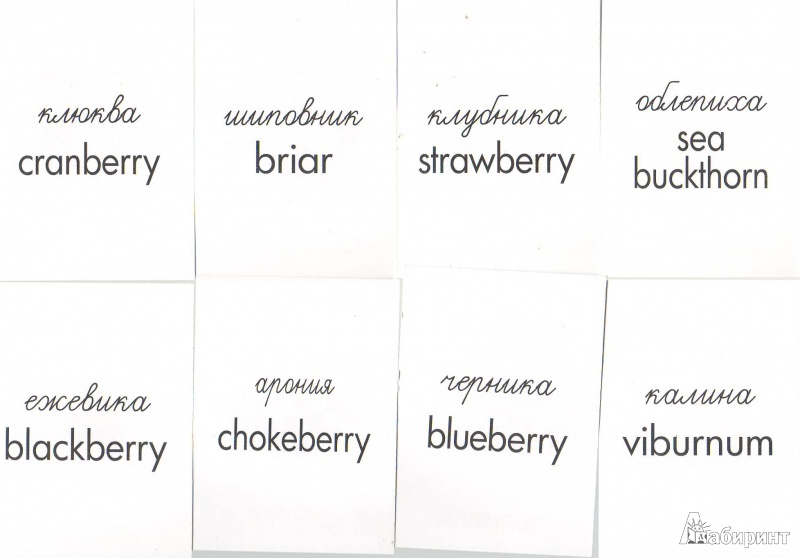 клюква
cranberry
шиповник
briar
клубника
strawberry
облепиха
sea
buckthorn
ежевика
blackberry
арония
chokeberry
черника
blueberry
калина
viburnum
Лабиринт